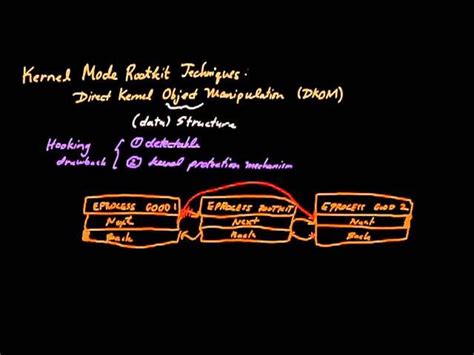 Kernel Mode Rootkit Techniques:
Direct Kernel Object Manipulation (DKOM)
(data) Structure
Hooking drawback { ① detectable
② kernel protection mechanism
EPROCESS GOOD 1 EPROCESS ROOTKIT EPROCESS GOOD 2
Next Next Next
Back Back Back